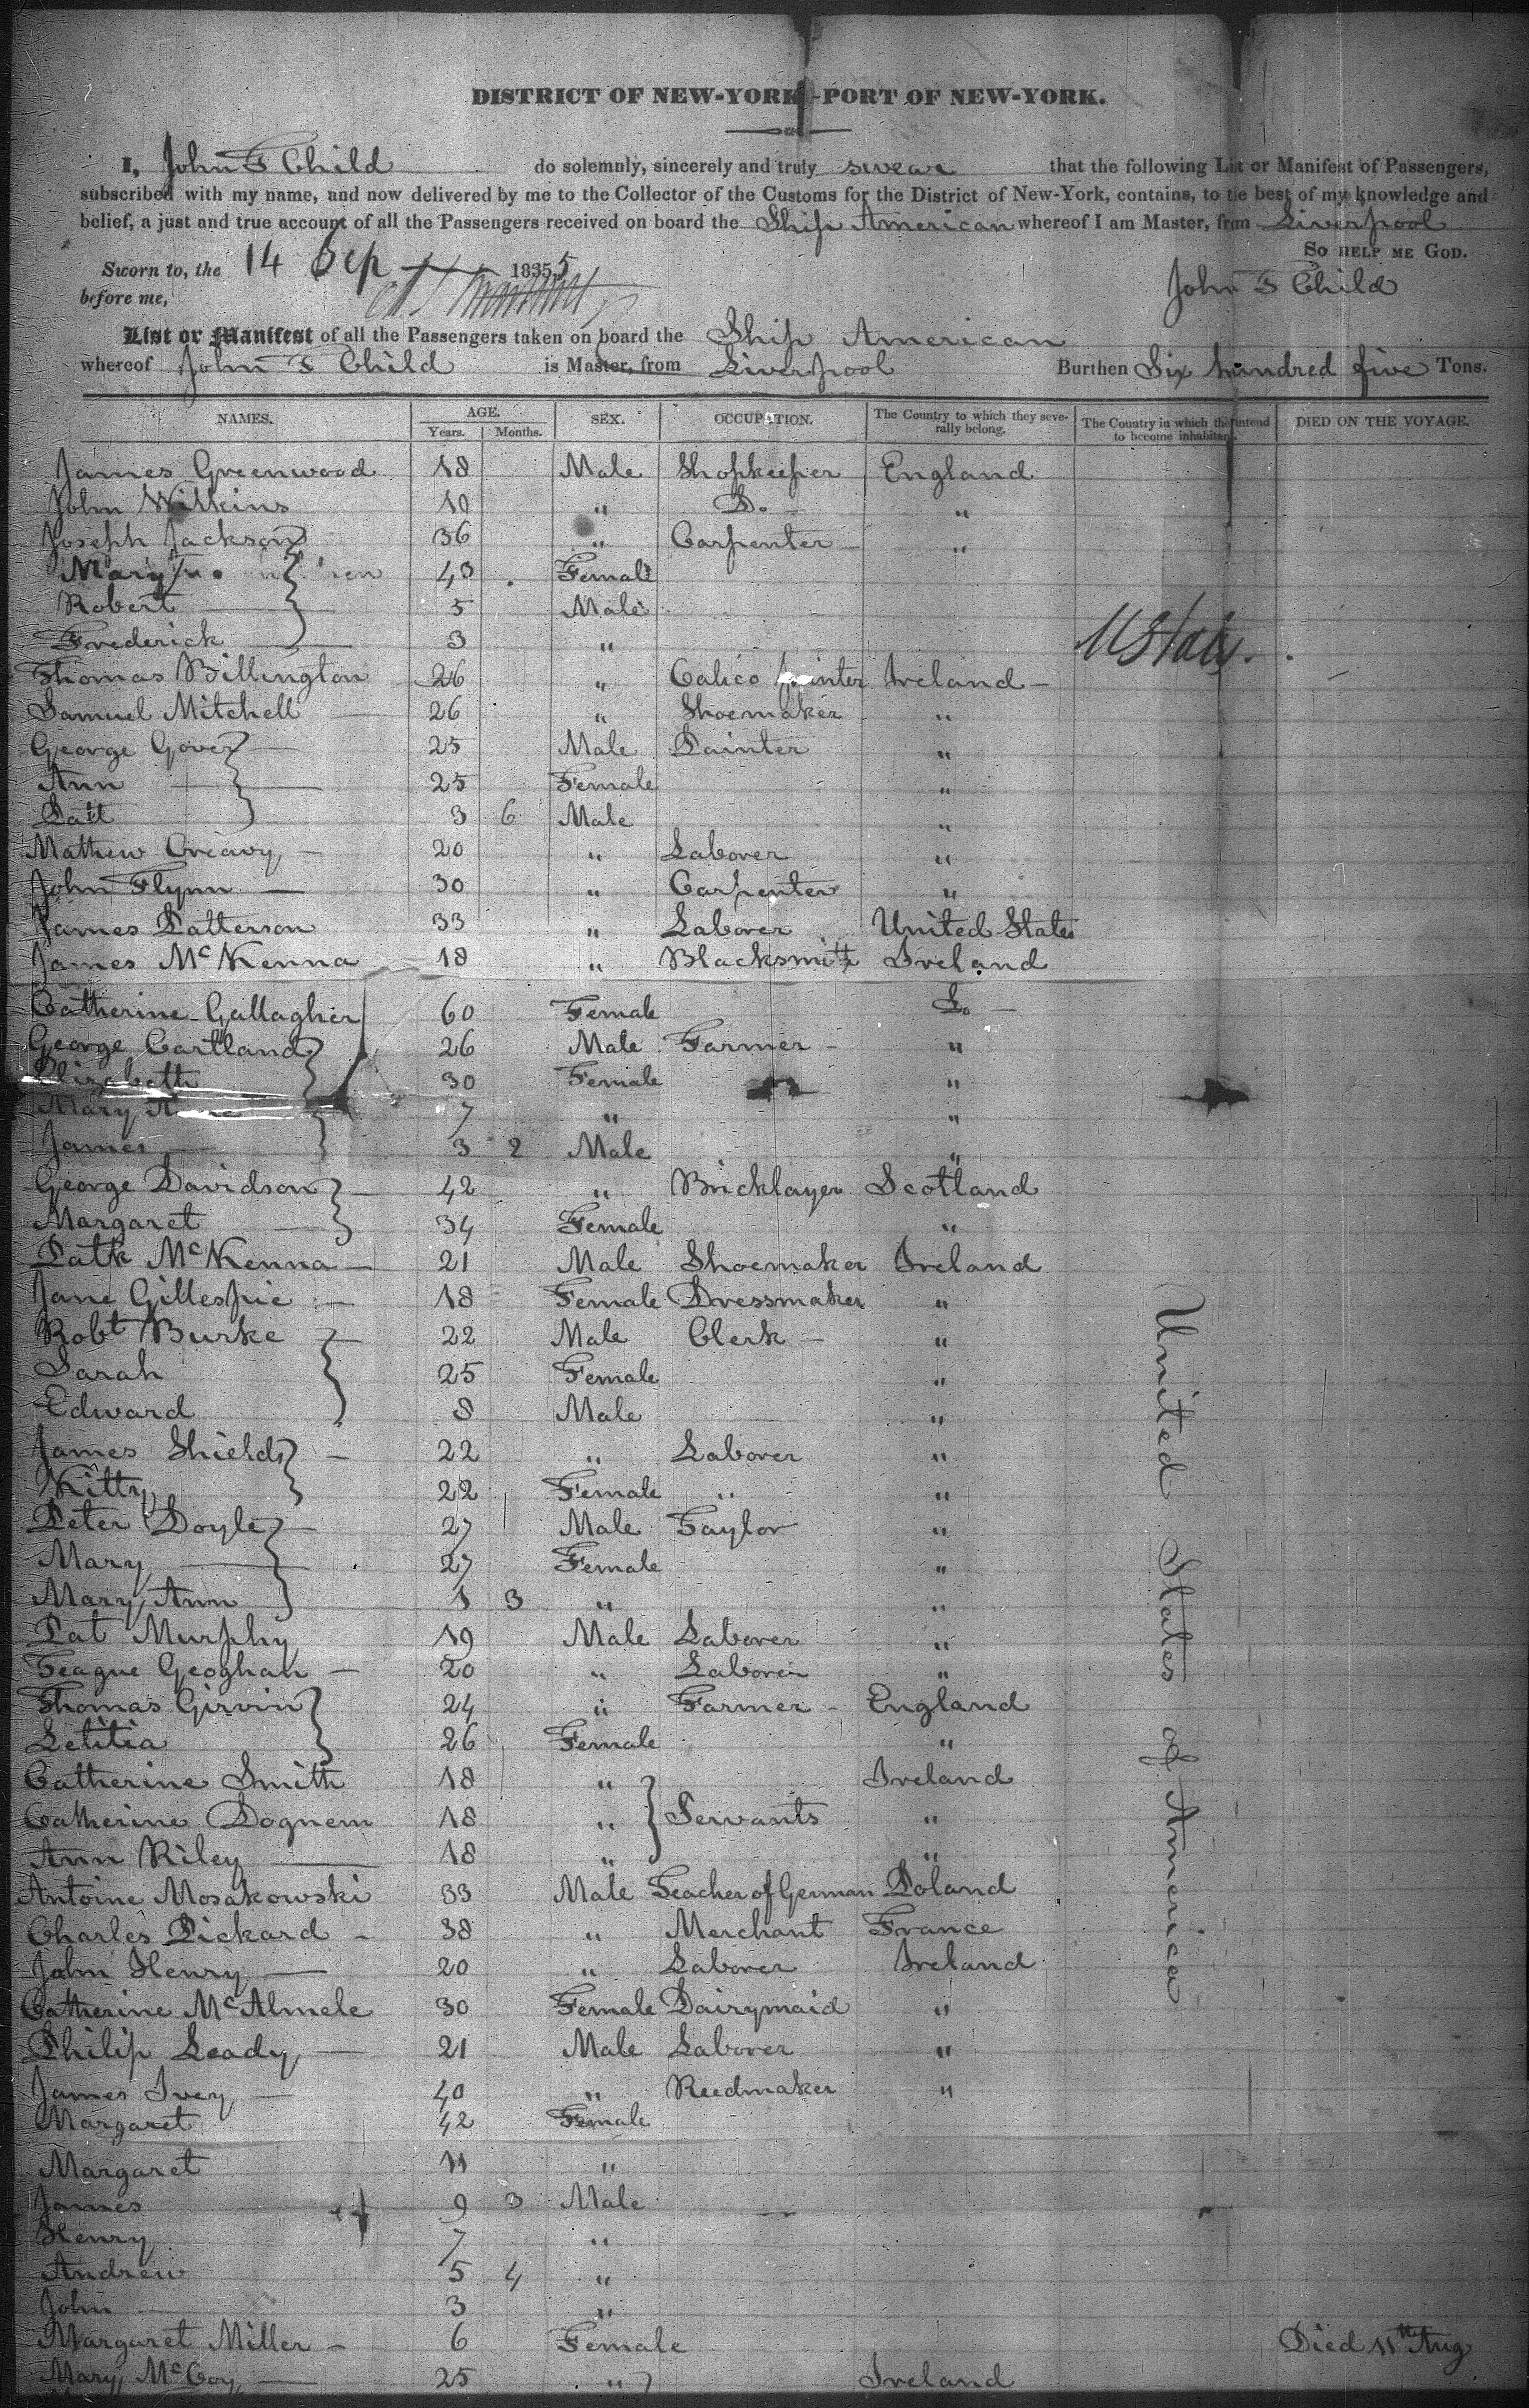 DISTRICT OF NEW-YORK-PORT OF NEW-YORK.
I, John F Child do solemnly, sincerely and truly swear that the following List or Manifest of Passengers,
subscribed with my name, and now delivered by me to the Collector of the Customs for the District of New-York, contains, to the best of my knowledge and
belief, a just and true account of all the Passengers received on board the Ship American whereof I am Master, from Liverpool
SO HELP ME GOD.
Sworn to, the 14 Sep 1835
before me,
John F Child
List or Manifest of all the Passengers taken on board the Ship American
whereof John F Child is Master, from Liverpool Burthen Six hundred five Tons.
NAMES. AGE. Years. Months. SEX. OCCUPATION. The Country to which they severally belong. The Country in which they intend to become inhabitants. DIED ON THE VOYAGE.
James Greenwood 18 Male Shopkeeper England
John Wilkins 10 " Do "
Joseph Jackson 36 " Carpenter "
Mary 43 Female
Robert 5 Male
Frederick 3 " U States
Thomas Billington 26 " Calico Printer Ireland
Samuel Mitchell 26 " Shoemaker "
George Gover 25 Male Painter "
Ann 25 Female "
Patt 3 6 Male "
Mathew Creavy 20 " Laborer "
John Flynn 30 " Carpenter "
James Patterson 33 " Laborer United States
James McKenna 18 " Blacksmith Ireland
Catherine Gallagher 60 Female Do
George Cartland 26 Male Farmer "
Elizabeth 30 Female "
Mary 7 " "
James 3 2 Male "
George Davidson 42 " Bricklayer Scotland
Margaret 34 Female "
Patk McKenna 21 Male Shoemaker Ireland
Jane Gillespie 18 Female Dressmaker "
Robt Burke 22 Male Clerk "
Sarah 25 Female "
Edward 8 Male "
James Shields 22 " Laborer "
Kitty 22 Female " "
Peter Doyle 27 Male Taylor "
Mary 27 Female "
Mary Ann 1 3 " "
Pat Murphy 19 Male Laborer "
Teague Geoghan 20 " Laborer "
Thomas Girvin 24 " Farmer England
Letitia 26 Female "
Catherine Smith 18 " Ireland
Catherine Dognem 18 " Servants "
Ann Riley 18 " "
Antoine Mosakowski 33 Male Teacher of German Poland
Charles Pickard 38 " Merchant France
John Henry 20 " Laborer Ireland
Catherine McAlmele 30 Female Dairymaid "
Philip Leady 21 Male Laborer "
James Ivey 40 " Reedmaker "
Margaret 42 Female
Margaret 11 "
James 9 3 Male
Henry 7 "
Andrew 5 4 "
John 3 "
Margaret Miller 6 Female Died 11th Aug
Mary McCoy 25 " Ireland
United States of America